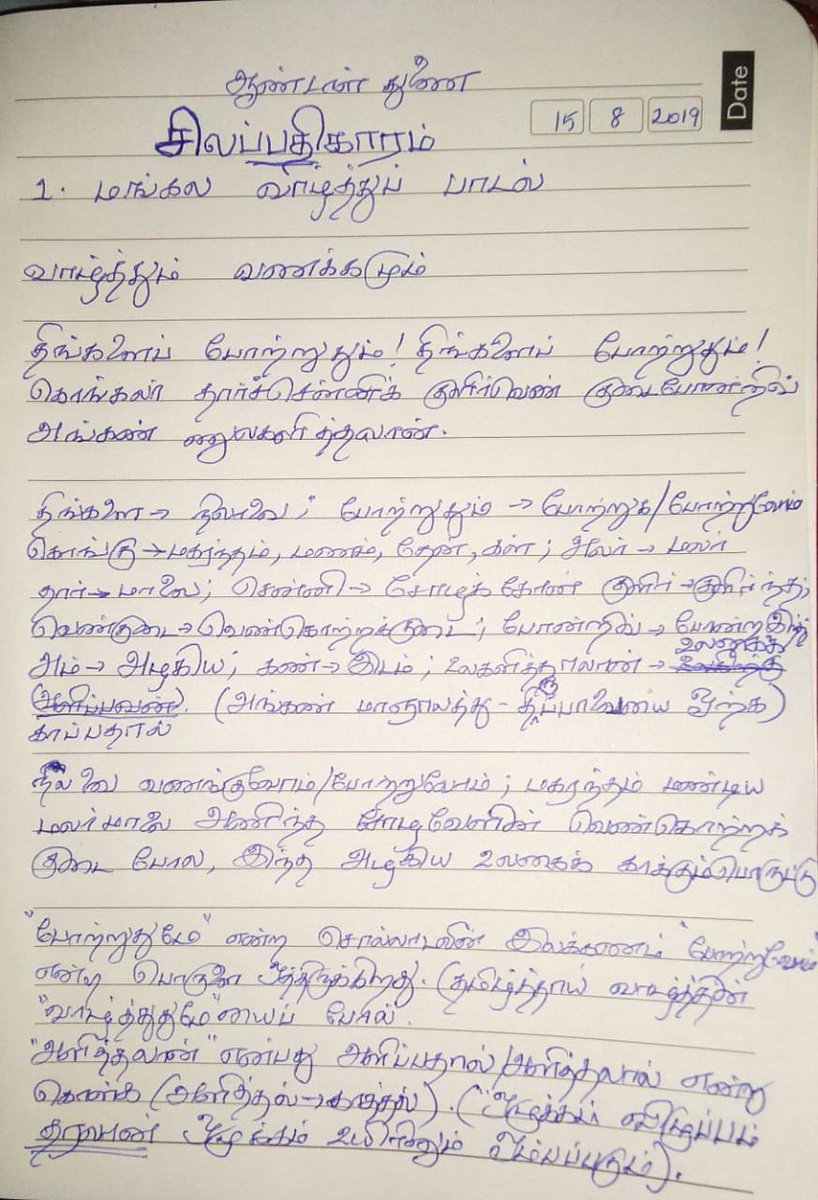 ஆண்டாள் துணை
Date
15 8 2019
சிலப்பதிகாரம்
1. மங்கல வாழ்த்துப் பாடல்
வாழ்த்தும் வணக்கமும்
திங்களைப் போற்றுதும்! திங்களைப் போற்றுதும்!
கொங்கலர் தார்ச்சென்னிக் குளிர்வெண் குடைபோன்றிவ்
அங்கண் ணுலகளித்தலான்.
திங்களை → நிலாவை; போற்றுதும் → போற்றுக/போற்றுவோம்
கொங்கு → மகரந்தம், மணம், தேன், கள்; அலர் → மலர்
தார் → மாலை; சென்னி → சோழக் கோன் குளிர் → குளிர்ந்த;
வெண்குடை → வெண்கொற்றக்குடை; போன்றிவ் → போன்ற இந்த
அம் → அழகிய; கண் → இடம்; உலகளித்தலான் → உலகைக்
அளிப்பவன். (அங்கண் மாஞாலத்து - திருப்பாவையை ஓர்க)
காப்பதால்
நிலவை வணங்குவோம்/போற்றுவோம்; மகரந்தம் மண்டிய
மலர்மாலை அணிந்த சோழவேளின் வெண்கொற்றக்
குடை போல, இந்த அழகிய உலகைக் காக்கும்பொருட்டு
"போற்றுதுமே" என்ற சொல்லாடலின் இலக்கணம் "போற்றுவோம்"
என்ற பொருளை அத்திருக்கிறது. (தமிழ்த்தாய் வாழ்த்தின்
"வாழ்த்துதுமே"யைப் போல்.
"அளித்தலான்" என்பது அளிப்பதால்/அளித்தலால் என்று
கொள்க (அளித்தல் → காத்தல்). ("ஒழுக்கம் விழுப்பம்
தரலான் ஒழுக்கம் உயிரினும் ஓம்பப்படும்).